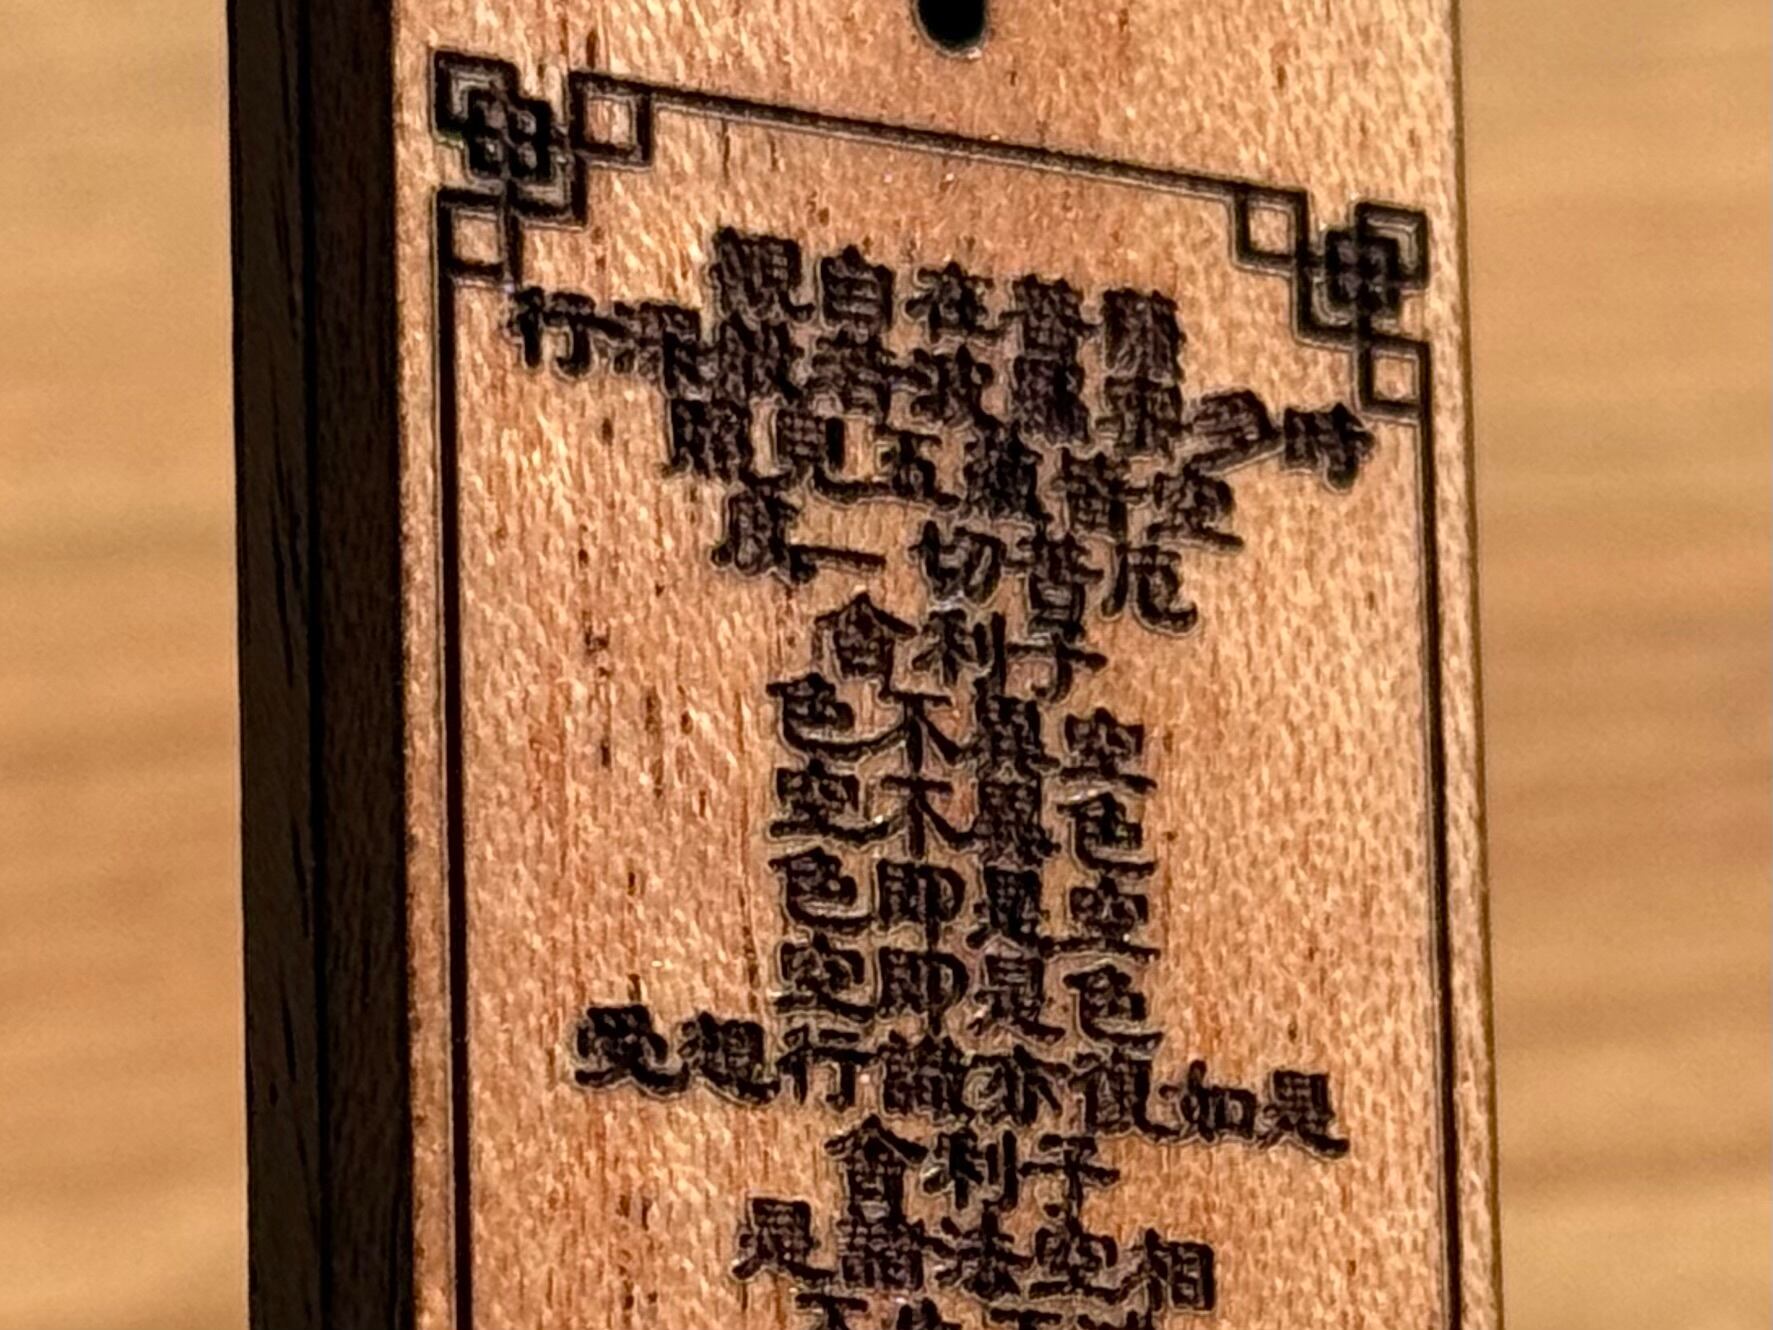 觀自在菩薩
行深般若波羅蜜多時
照見五蘊皆空
度一切苦厄
舍利子
色不異空
空不異色
色即是空
空即是色
受想行識亦復如是
舍利子
是諸法空相